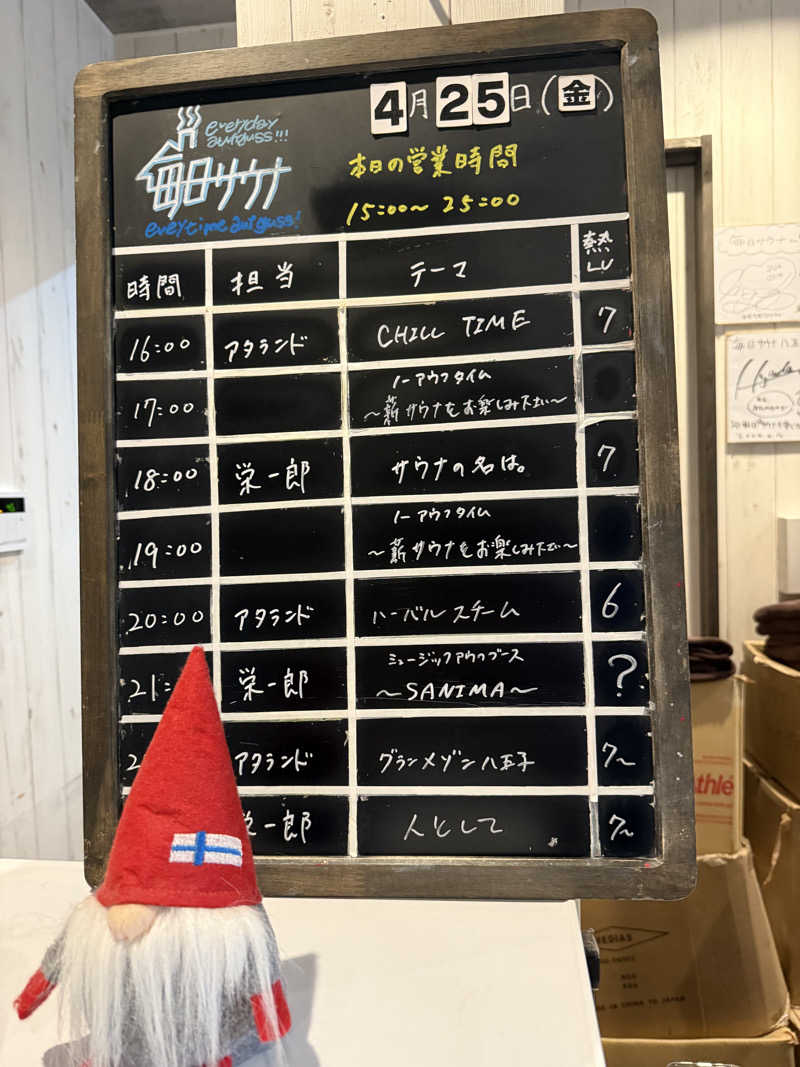 4月25日(金)
everyday
aufguss!!!
毎日サウナ
everytime aufguss!
本日の営業時間
15:00~ 25:00
時間 担当 テーマ 熱LV
16:00 アタランド CHILL TIME 7
17:00 ノーアウフタイム
~薪サウナをお楽しみ下さい~
18:00 栄一郎 サウナの名は。 7
19:00 ノーアウフタイム
~薪サウナをお楽しみ下さい~
20:00 アタランド ハーバルスチーム 6
21: 栄一郎 ミュージックアウフブース
~SANIMA~ ?
2 アタランド グランメゾン八王子 7~
栄一郎 人として 7~
毎日サウナ
毎日サウナ八王
thle
MEDIAS
MADE IN CHINA TO JAPAN